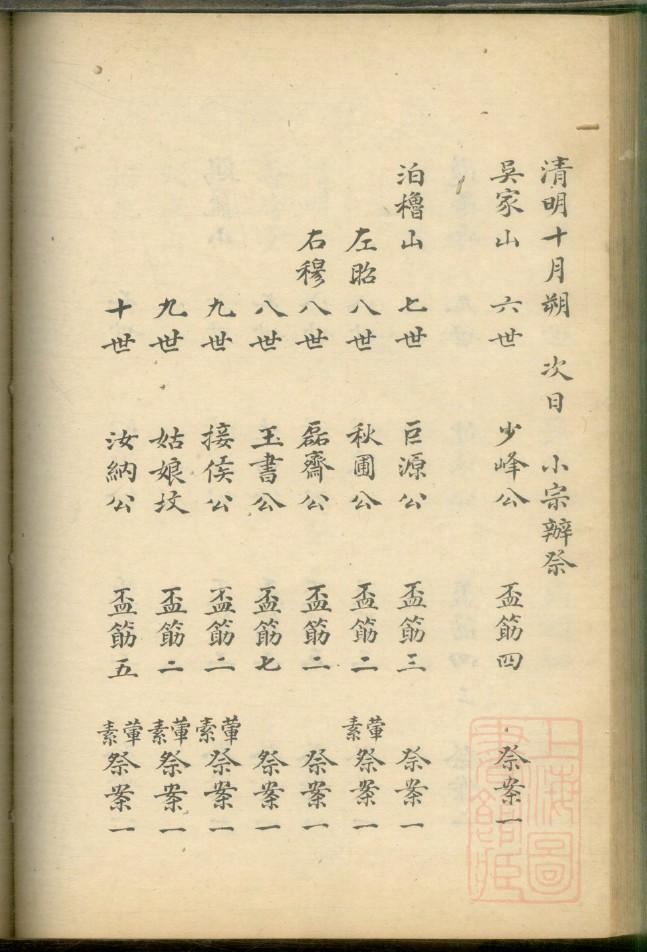 清明十月朔 次日 小宗辦祭
吳家山 六世 少峰公 盃筯四 祭案一
泊櫓山 七世 巨源公 盃筯三 祭案一
左昭 八世 秋圃公 盃筯二 葷素祭案一
右穆 八世 磊齋公 盃筯二 祭案一
八世 玉書公 盃筯七 祭案一
九世 接侯公 盃筯二 葷素祭案一
九世 姑娘坟 盃筯二 葷素祭案一
十世 汝納公 盃筯五 葷素祭案一
上海圖書館藏